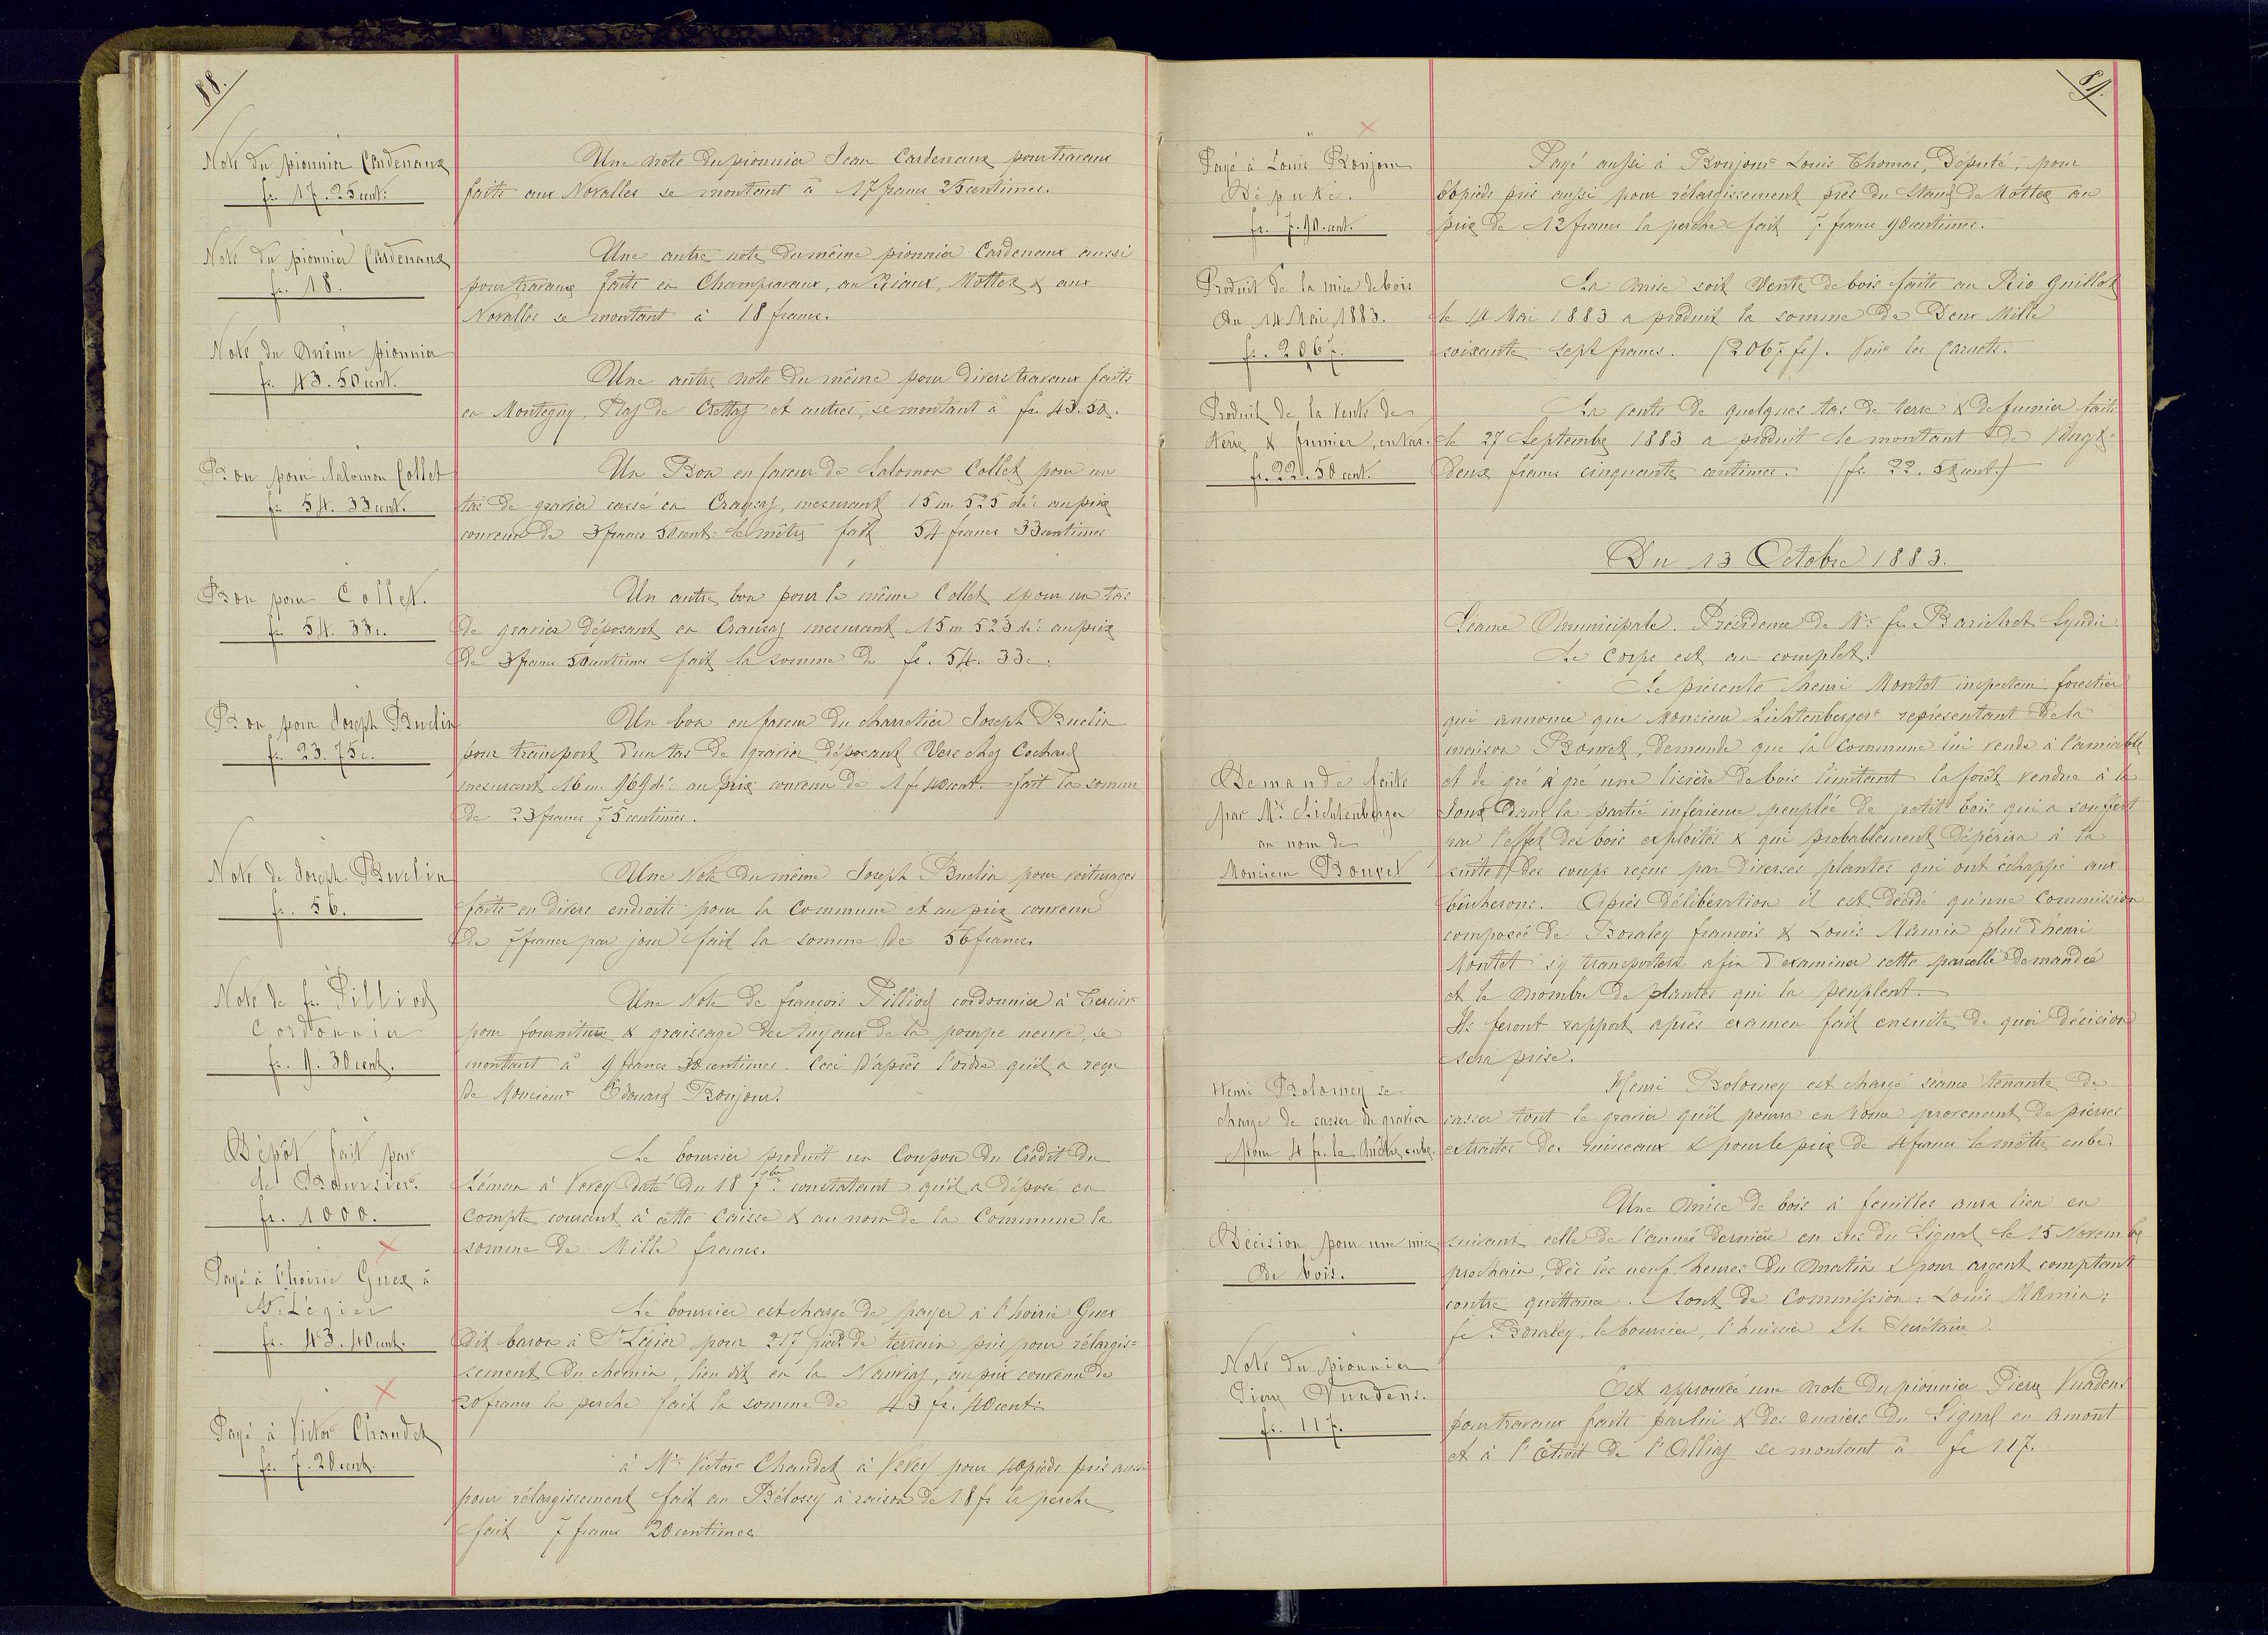 88.
Note du pionnier Cardenaux
fr. 17. 25 cent:
Une note du pionnier Jean Cardenaux pour travaux
faits aux Novalles se montant à 17 francs 25 centimes.
Note du pionnier Cardenaux
fr. 18.
Une autre note du même pionnier Cardenaux aussi
pour travaux faits en Champsavaux, au Riaux, Mottex & aux
Novalles se montant à 18 francs.
Note du même pionnier
fr. 43. 50 cent.
Une autre note du même pour divers travaux faits
en Monteguy, Plaz de Crettaz et autres, se montant à fr. 43. 50.
Bon pour Salomon Collet
fr. 54. 33 cent.
Un Bon en faveur de Salomon Collet pour un
tas de gravier cassé en Crausaz, mesurant 15 m. 525 dé: au prix
convenu de 3 francs 50 cent: le mètre fait 54 francs 33 centimes
Bon pour Collet.
fr. 54. 33 c.
Un autre bon pour le même Collet & pour un tas
de gravier déposant en Crausaz mesurant 15 m 523 dé: au prix
de 3 francs 50 centimes fait la somme de fr. 54. 33 c.
Bon pour Joseph Buclin
fr. 23. 75 c.
Un bon en faveur du charretier Joseph Buclin
pour transport d'un tas de gravier déposant Vers chez Cochard
mesurant 16 m. 969 dé: au prix convenu de 1 f. 40 cent. fait la somme
de 23 francs 75 centimes.
Note de Joseph Buclin
fr. 56.
Une Note du même Joseph Buclin pour voiturages
faits en divers endroits pour la Commune et au prix convenu
de 7 francs par jour fait la somme de 56 francs.
Note de fr. Pilliod
Cordonnier
fr. 9. 30 cent.
Une Note de françois Pilliod cordonnier à Tercier
pour fourniture & graissage des tuyaux de la pompe neuve, se
montant à 9 francs 30 centimes. Ceci d'après l'ordre qu'il a reçu
de Monsieur Edouard Bonjour.
Dépôt fait par
le Boursier.
fr. 1000.
Le boursier produit un Coupon du Crédit du
Léman à Vevey daté du 18 7bre: constatant qu'il a déposé en
Compte courant à cette Caisse & au nom de la Commune la
somme de Mille francs.
Payé à l'hoirie Guex à
St. Légier
fr. 43. 40 cent:
Le boursier est chargé de payer à l'hoirie Guex
dit baron à St Légier pour 217 pieds de terrain pris pour rélargis=
sement du chemin, lieu dit en la Nauvraz, au prix convenu de
20 francs la perche fait la somme de 43 fr. 40 cent:
Payé à Victor Chaudet
fr. 7. 20 cent.
à Mr. Victor Chaudet à Vevey pour 40 pieds pris aussi
pour rélargissement fait au Bélossy à raison de 18 fr la perche
fait 7 francs 20 centimes
89.
Payé à Louis Bonjour
Député.
fr. 7. 90 cent.
Payé aussi à Bonjour Louis Thomas, Député, pour
66 pieds pris aussi pour rélargissement près du Stand de Mottex au
prix de 12 francs la perche fait 7 francs 90 centimes.
Produit de la mise de bois
du 14 Mai 1883.
fr. 2067.
La mise soit Vente de bois faite au Rio Guillot
le 14 Mai 1883 a produit la somme de Deux Mille
soixante sept francs. (2067 fr). Voir les Carnets.
Produit de la Vente de
terre & fumier, en tas.
fr. 22. 50 cent.
La vente de quelques tas de terre & de fumier faite
le 27 Septembre 1883 a produit le montant de Vingt-
deux francs cinquante centimes. (fr. 22. 50 cent.)
Du 13 Octobre 1883.
Séance Municipale. Présidence de Mr. fr. Barichet Syndic
Le Corps est au complet.
Se présente henri Montet inspecteur forestier
qui annonce que Monsieur Lichtenberger représentant de la
maison Bouvet, demande que la Commune lui vende à l'amiable
Demande faite
par Mr. Lichtenberger
au nom de
Monsieur Bouvet
et de gré à gré une lisière de bois limitant la forêt vendue à la
Joux dans la partie inférieure peuplée de petit bois qui a souffert
par l'effet des bois exploités & qui probablement dépérira à la
suite des coups reçus par diverses plantes qui ont échappé aux
bûcherons. Après délibération il est décidé qu'une Commission
composée de Boraley françois & Louis Mamin plus d'henri
Montet s'y transportera afin d'examiner cette parcelle demandée
et le nombre de plantes qui la peuplent.
Ils feront rapport après examen fait ensuite de quoi décision
sera prise.
Henri Bolomey se
charge de casser du gravier
pour 4 fr. le mètre cube.
Henri Bolomey est chargé séance tenante de
casser tout le gravier qu'il pourra en Joux provenant de pierres
extraites des ruisseaux & pour le prix de 4 francs le mètre cube.
Décision pour une mise
de bois.
Une mise de bois à feuilles aura lieu en
suivant celle de l'année dernière en sus du Signal le 15 Novembre
prochain, dès les neuf heures du matin & pour argent comptant
contre quittance. Sont de Commission: Louis Mamin,
fr Boraley, le boursier, l'huissier & le Secrétaire.
Note du pionnier
Pierre Vuadens.
fr. 117.
Est approuvée une note du pionnier Pierre Vuadens
pour travaux faits par lui & des ouvriers du Signal en amont
et à l'Etroit de l'Alliaz se montant à fr 117.